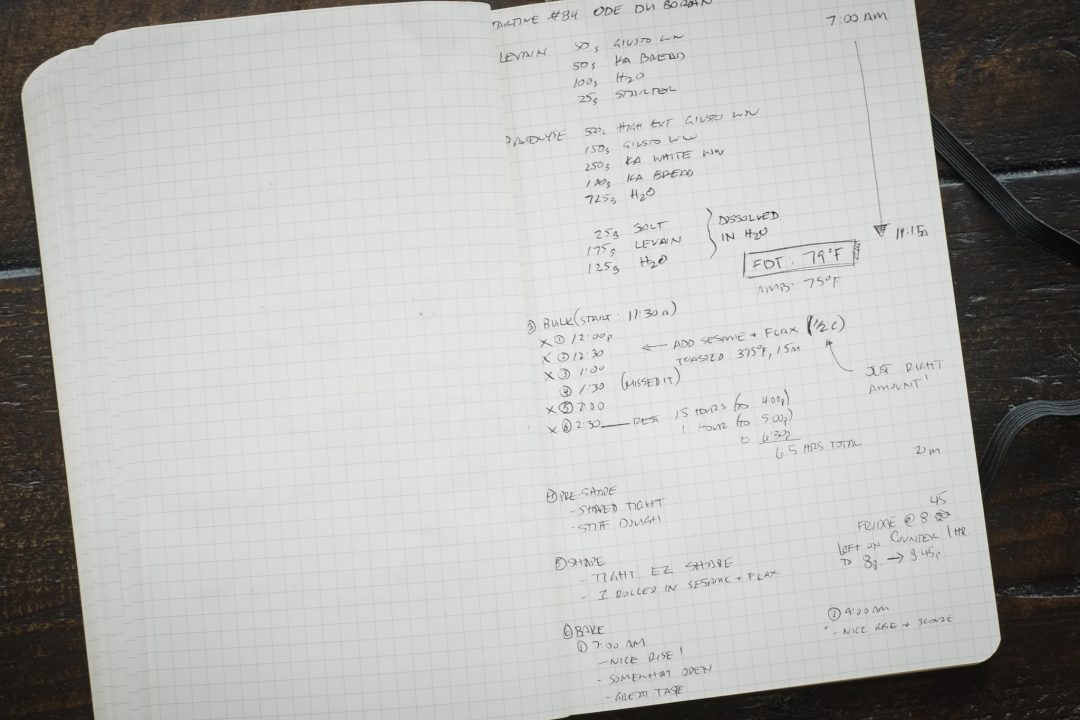 TARTINE #34 ODE DU BORDAN
7:00 AM
LEVAIN 50g GIUSTO WW
50g KA BREAD
100g H2O
25g STARTER
500g HIGH EXT GIUSTO WW
150g GIUSTO WW
250g KA WHITE WW
100g KA BREAD
725g H2O
25g SALT
175g LEVAIN
125g H2O
DISSOLVED
IN H2O
11:15a
FDT: 79°F
AMB: 75°F
③ BULK (START: 11:30a)
X ① 12:00p
X ② 12:30
X ③ 1:00
④ 1:30 (MISSED IT)
X ⑤ 2:00
X ⑥ 2:30 — REST 1.5 HOURS (to 400p)
1 HOUR (to 5:00p)
6:30p
6.5 HRS TOTAL
← ADD SESAME + FLAX (1/2 C)
TOASTED 375°F, 15m
JUST RIGHT
AMOUNT!
20m
④ PRE-SHAPE
- SHAPED TIGHT
- STIFF DOUGH
⑤ SHAPE
- TIGHT EZ SHAPE
- 1 ROLLED IN SESAME + FLAX
45
FRIDGE @ 8:
LEFT ON COUNTER 1 HR
TO 8p. → 8:45p
⑥ BAKE
① 7:00 AM
- NICE RISE!
- SOMEWHAT OPEN
- GREAT TASTE
② 9:00 AM
- NICE RISE + SCORE